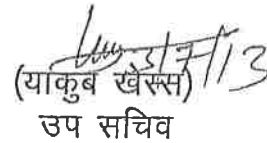 (याकुब खेस्स)
उप सचिव